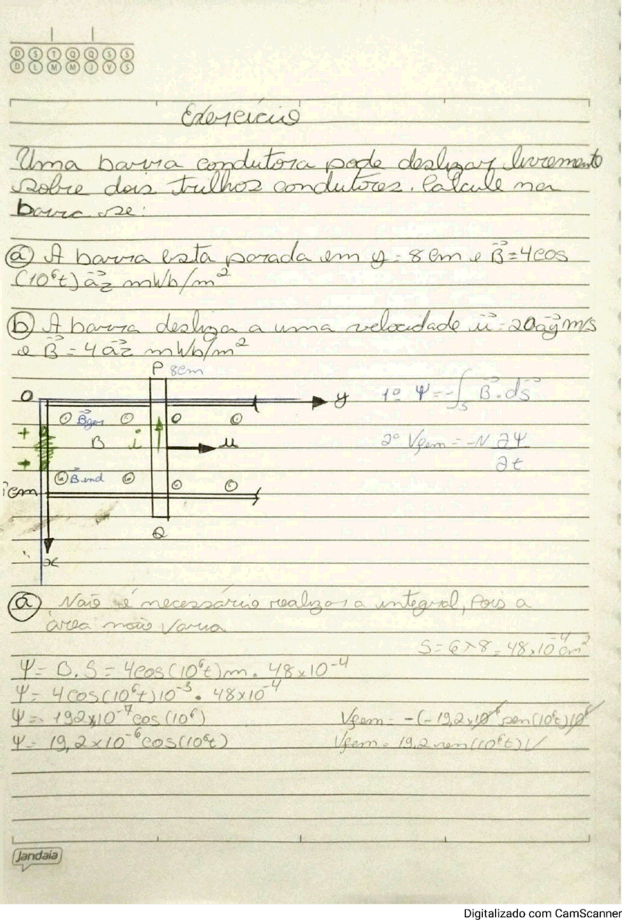 D S T Q Q S S
D L M M J V S
Exercício
Uma barra condutora pode deslizar livremente
sobre dois trilhos condutores. Calcule na
barra se:
a) A barra esta parada em y = 8cm e B⃗ = 4cos
(10⁶t) a⃗z mWb/m²
b) A barra desliza a uma velocidade u⃗ = 20a⃗y m/s
e B⃗ = 4 a⃗z mWb/m²
P 8cm
O y
1º Ψ = -∫s B⃗ . ds⃗
+ B⃗ B i u
2º Vfem = -N ∂Ψ/∂t
- B⃗ind
cm
Q
x
a) Não é necessário realizar a integral, pois a
área não varia
S = 6×8 = 48×10⁻⁴ cm²
Ψ = B.S = 4cos(10⁶t)m . 48×10⁻⁴
Ψ = 4cos(10⁶t)10⁻³ . 48×10⁻⁴
Ψ = 192×10⁻⁷cos(10⁶) Vfem = -(-19,2×10⁻⁶ sen(10⁶t)10⁶
Ψ = 19,2×10⁻⁶cos(10⁶t) Vfem = 19,2 sen(10⁶t)V
Jandaia
Digitalizado com CamScanner